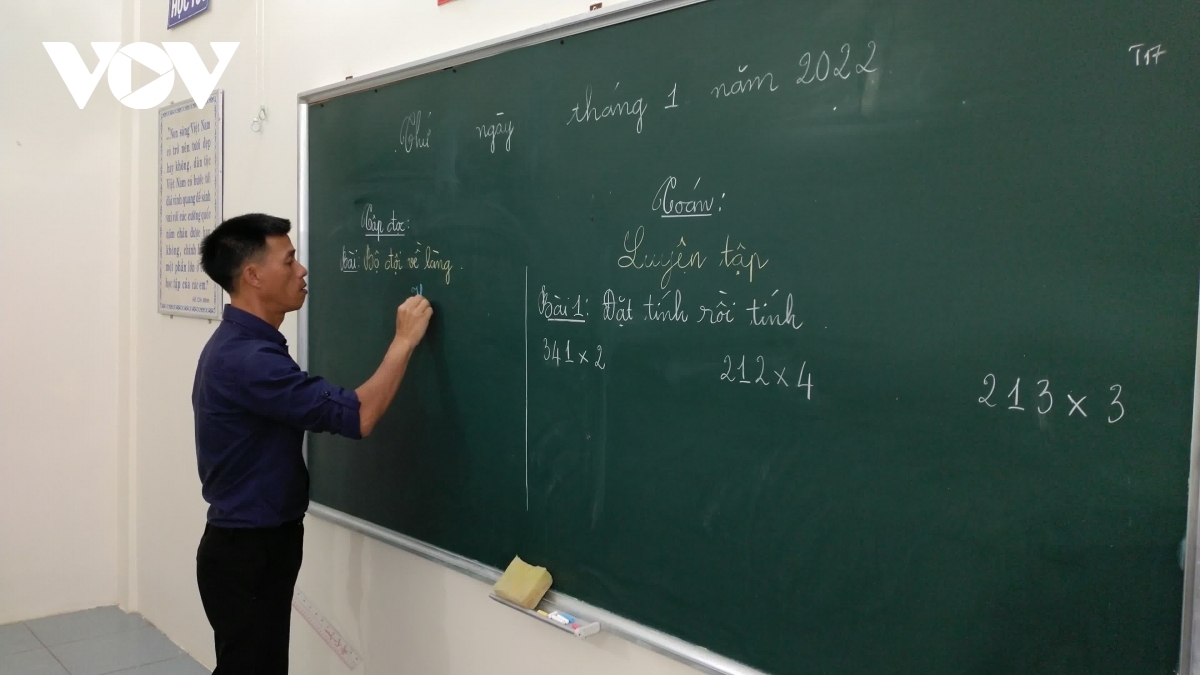 HỌC TỐ
VOV
"Non sông Việt Nam
có trở nên tươi đẹp
hay không, dân tộc
Việt Nam có bước tới
đài vinh quang để sánh
vai với các cường quốc
năm châu được hay
không, chính
một phần lớn ở
học tập của các em"
T17
Thứ ngày tháng 1 năm 2022
Tập đọc:
Bài: Bộ đội về làng.
Toán:
Luyện tập
Bài 1: Đặt tính rồi tính.
341 x 2 212 x 4 213 x 3